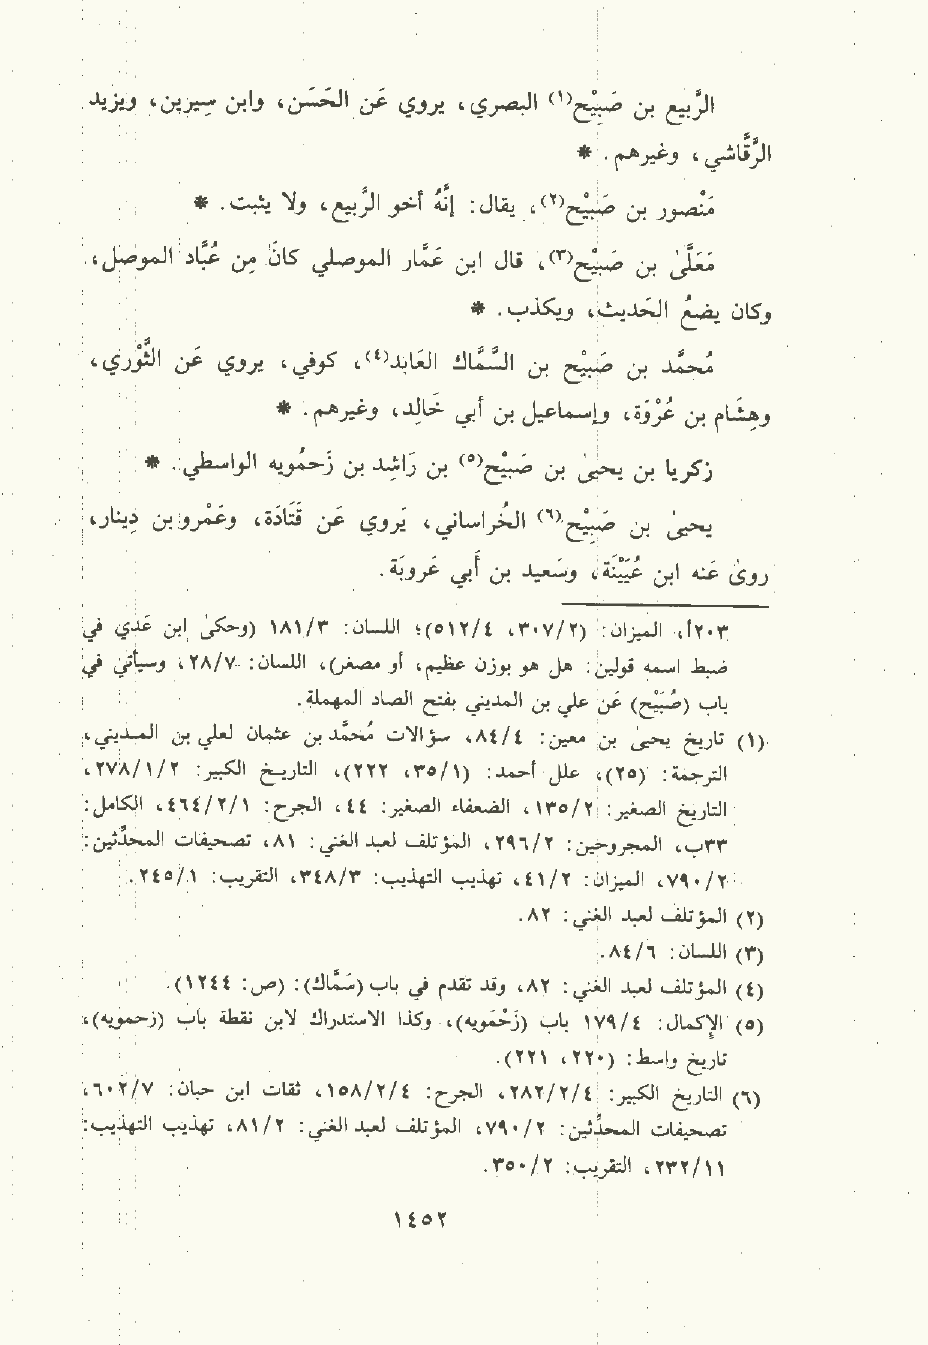 الرَّبيع بن صَبِيْح(١) البصري، يروي عَن الحَسَن، وابن سِيرين، ويزيد
الرَّقَّاشي، وغيرهم. *
مَنْصور بن صَبيْح(٢)، يقال: إنَّهُ أخو الرَّبيع، ولا يثبت. *
مَعَلَّىٰ بن صَبيْح(٣)، قال ابن عَمَّار الموصلي كَانَ مِن عُبَّاد الموصل،
وكان يضعُ الحَديث، ويكذب. *
مُحمَّد بن صَبيْح بن السَّمَّاك العَابد(٤)، كوفي، يروي عَن الثَّوْري،
وهِشَام بن عُرْوَة، وإسماعيل بن أبي خَالِد، وغيرهم. *
زكريا بن يحيىٰ بن صَبيْح(٥) بن رَاشِد بن زَحمُويه الواسطي. *
يحيىٰ بن صَبِيْح(٦) الخُراساني، يرَوي عَن قَتَادَة، وعَمْرو بن دِينار،
روىٰ عَنه ابن عُيَيْنَة، وسَعيد بن أَبي عَروبَة.
٢٠٣أ، الميزان: (٣٠٧/٢، ٥١٢/٤)؛ اللسان: ١٨١/٣ (وحكىٰ ابن عَدي في
ضبط اسمه قولين: هل هو بوزن عظيم، أو مصغر)، اللسان: ٢٨/٧، وسيأتي في
باب (صُبَيْح) عَن علي بن المديني بفتح الصاد المهملة.
(١) تاريخ يحيىٰ بن معين: ٨٤/٤، سؤالات مُحمَّد بن عثمان لعلي بن المديني،
الترجمة: (٢٥)، علل أحمد: (٣٥/١، ٢٢٢)، التاريخ الكبير: ٢٧٨/١/٢،
التاريخ الصغير: ١٣٥/٢، الضعفاء الصغير: ٤٤، الجرح: ٤٦٤/٢/١، الكامل:
٣٣ب، المجروحين: ٢٩٦/٢، المؤتلف لعبد الغني: ٨١، تصحيفات المحدِّثين:
٧٩٠/٢، الميزان: ٤١/٢، تهذيب التهذيب: ٣٤٨/٣، التقريب: ٢٤٥/١.
(٢) المؤتلف لعبد الغني: ٨٢.
(٣) اللسان: ٨٤/٦.
(٤) المؤتلف لعبد الغني: ٨٢، وقد تقدم في باب (سَمَّاك): (ص: ١٢٤٤).
(٥) الإكمال: ١٧٩/٤ باب (زَحْمَويه)، وكذا الاستدراك لابن نقطة باب (زحمويه)،
تاريخ واسط: (٢٢٠، ٢٢١).
(٦) التاريخ الكبير: ٢٨٢/٢/٤، الجرح: ١٥٨/٢/٤، ثقات ابن حبان: ٦٠٢/٧،
تصحيفات المحدِّثين: ٧٩٠/٢، المؤتلف لعبد الغني: ٨١/٢، تهذيب التهذيب:
٢٣٢/١١، التقريب: ٣٥٠/٢.
١٤٥٢